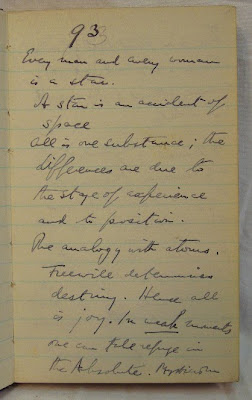 93
Every man and every woman
is a star.
A star is an accident of
space
All is one substance; the
differences are due to
the stage of experience
and to position.
The analogy with atoms.
Freewill determines
destiny. Hence all
is joy. In weak moments
one can take refuge in
the Absolute. Mysticism